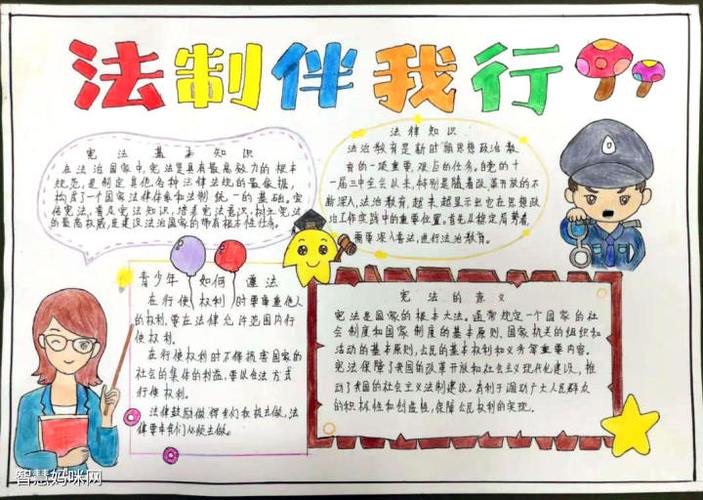 法制伴我行
宪法基本知识
在法治国家中,宪法是具有最高效力的根本
规范,是制定其他各种法律法规的最依据,
构成了一个国家法律体系和法制统一的基础。宣
传宪法,普及宪法知识,培养宪法意识,树立宪法
的最高权威,是建设法治国家的带有根本性任务。
法律知识
法治教育是新时期思想政治教
育的一项重要,艰占的任务。自党的十
一届三中全会以来,特别是随着改革开放的不
断深入,法治教育,越来越显示出它在思想政
治工作实践中的重要位置。首先从稳定局势看,
需要深入普法,进行法治教育。
青少年如何遵法
在行使权利时要尊重他人
的权利,要在法律允许范围内行
使权利。
在行使权利时不得损害国家的
社会的集体的利益,要以合法方式
行使权利。
法律鼓励做得我们积极去做,法
律要求我们必须去做。
宪法的意义
宪法是国家的根本大法。通常规定一个国家的社
会制度和国家制度的基本原则、国家机关的组织和
活动的基本原则,公民的基本权利和义务等重要内容。
宪法保障了我国的改革开放和社会主义现代化建设,推
动了我国的社会主义法制建设。有利于调动广大人民群众
的积极性和创造性,保障公民权利的实现。
智慧妈咪网